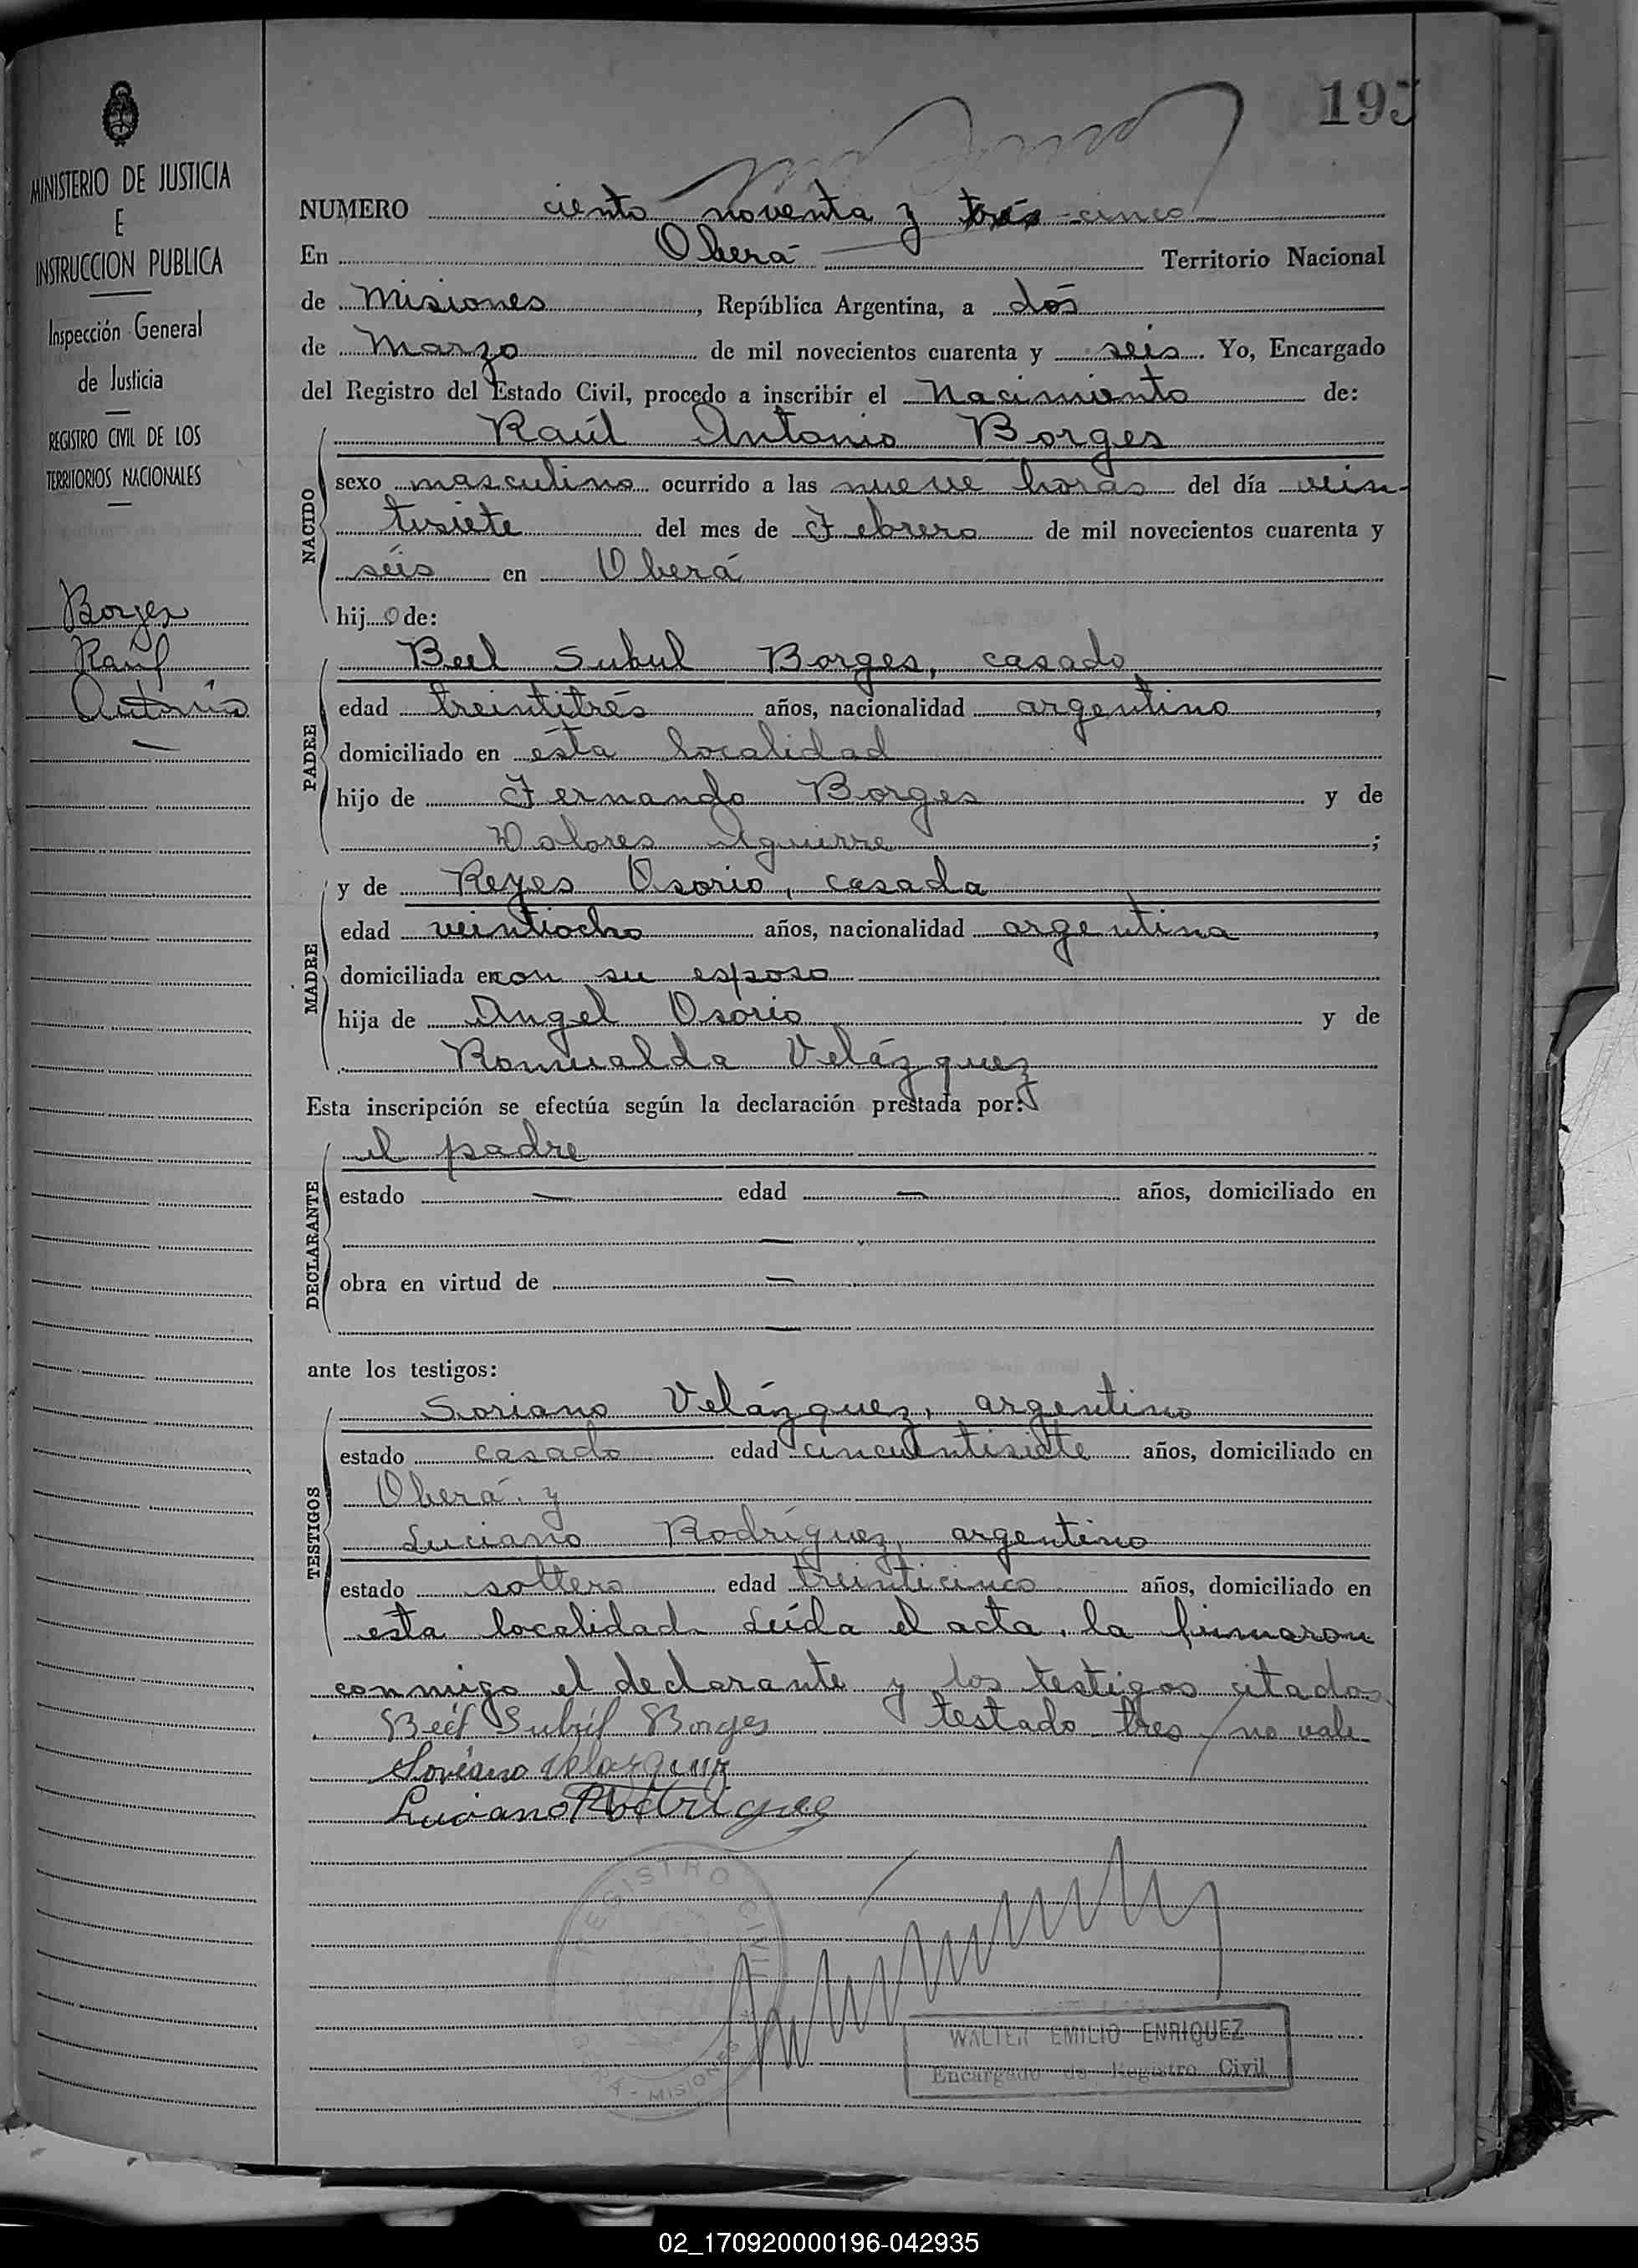 MINISTERIO DE JUSTICIA
E
INSTRUCCION PUBLICA
Inspección General
de Justicia
REGISTRO CIVIL DE LOS
TERRITORIOS NACIONALES
Borges
Raúl
Antonio
195
NUMERO ciento noventa y tres cinco
En Oberá Territorio Nacional
de Misiones, República Argentina, a dos
de Marzo de mil novecientos cuarenta y seis. Yo, Encargado
del Registro del Estado Civil, procedo a inscribir el Nacimiento de:
Raúl Antonio Borges
NACIDO
sexo masculino ocurrido a las nueve horas del día vein-
tisiete del mes de Febrero de mil novecientos cuarenta y
seis en Oberá
hijo de:
Beel Subul Borges, casado
PADRE
edad treintitrés años, nacionalidad argentino,
domiciliado en esta localidad
hijo de Fernando Borges y de
Dolores Aguirre;
y de Reyes Osorio, casada
MADRE
edad veintiocho años, nacionalidad argentina,
domiciliada en con su esposo
hija de Angel Osorio y de
Romualda Velázquez
Esta inscripción se efectúa según la declaración prestada por:
el padre
DECLARANTE
estado — edad — años, domiciliado en
—
obra en virtud de —
—
ante los testigos:
Soriano Velázquez, argentino
TESTIGOS
estado casado edad cincuentisiete años, domiciliado en
Oberá y
Luciano Rodríguez, argentino
estado soltero edad treinticinco años, domiciliado en
esta localidad. Leída el acta, la firmaron
conmigo el declarante y los testigos citados
Borges testado tres / no vale
Soriano Velazquez
Luciano Rodriguez
REGISTRO CIVIL
OBERA - MISIONES
WALTER EMILIO ENRIQUEZ
Encargado de Registro Civil
02_170920000196-042935